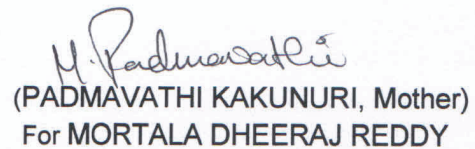 M. Padmavathi
(PADMAVATHI KAKUNURI, Mother)
For MORTALA DHEERAJ REDDY